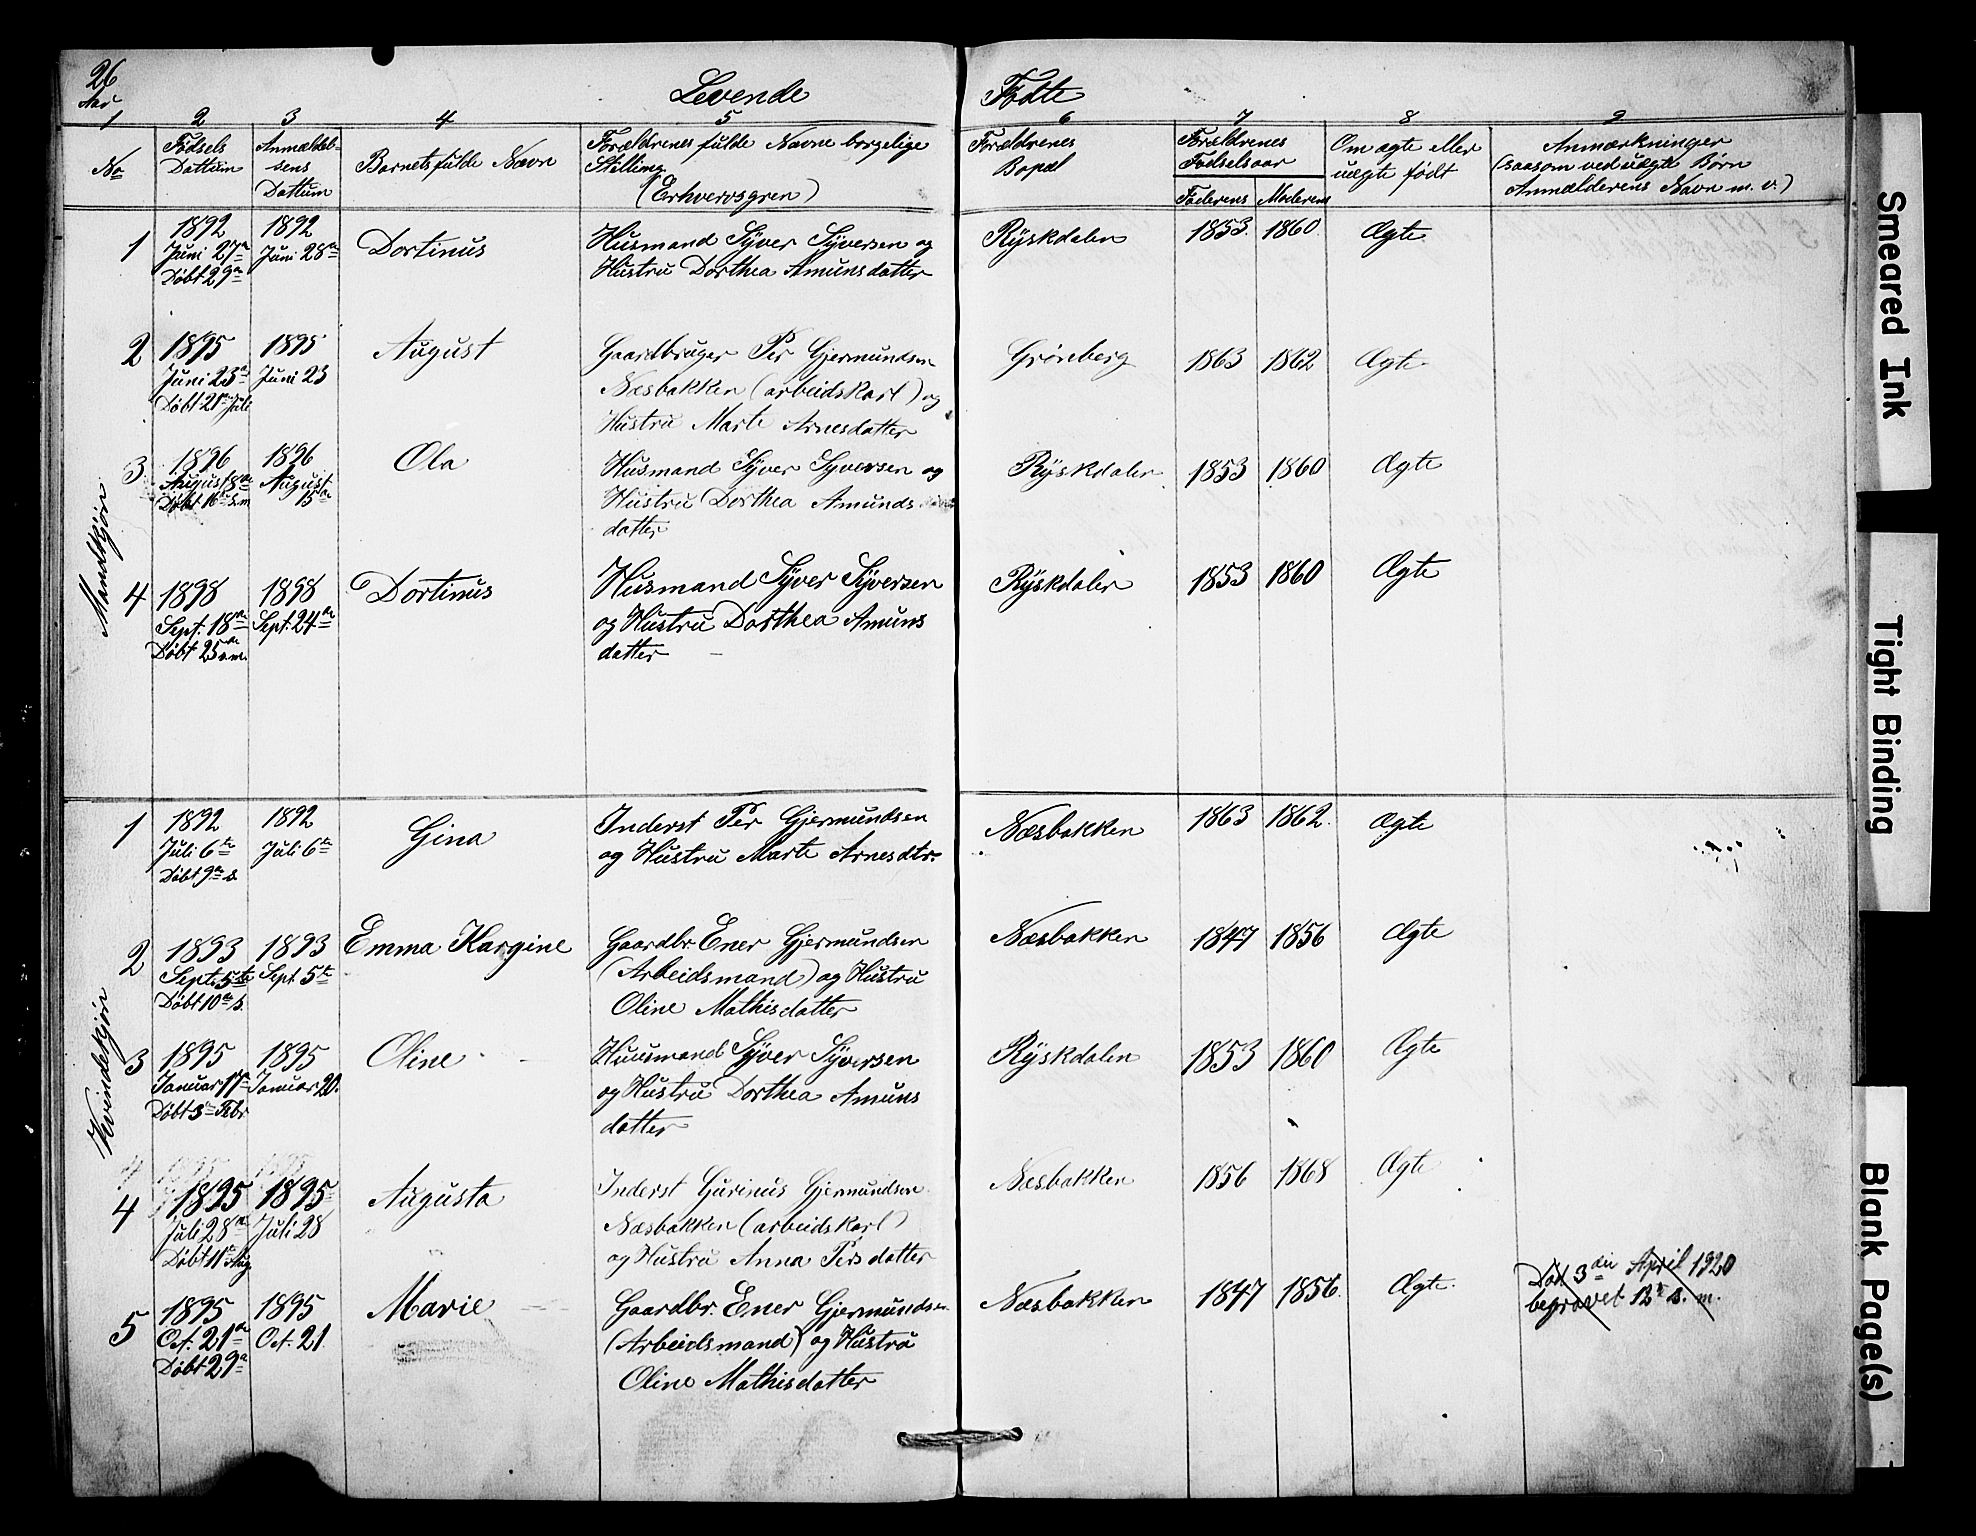 26
Aar
Levende Fødte
1 2 3 4 5 6 7 8 9
No
Fødsels Dattum
Anmældelsens Dattum
Barnets fulde Navn
Forældrenes fulde Navne borgelige Stilling (Erhvervsgren)
Forældrenes Bopæl
Forældrenes Fødselsaar
Faderens Moderens
Om ægte eller uægte født
Anmærkninger
(saasom ved uægte Børn
Anmælderens Navn m. v.)
Mandkjøn
1 1892 Juni 27de Døbt 29de
1892 Juni 28de
Dortinus
Husmand Syver Syversen og
Hustru Dorthea Amunsdatter
Ryskdalen 1853 1860 Ægte
2 1895 Juni 23de Døbt 21de Juli
1895 Juni 23
August
Gaardbruger Per Gjermundsen
Næsbakken (arbeidskarl) og
Hustru Marte Arnesdatter
Grønberg 1863 1862 Ægte
3 1896 August 8de Døbt 16de s.m
1896 August 15de
Ola
Husmand Syver Syversen og
Hustru Dorthea Amunds
datter
Ryskdalen 1853 1860 Ægte
4 1898 Sept. 18de Døbt 25 s.m.
1898 Sept. 24de
Dortinus
Husmand Syver Syversen
og Hustru Dorthea Amuns
datter
Ryskdalen 1853 1860 Ægte
Kvindekjøn
1 1892 Juli 6te Døbt 9de s.
1892 Juli 6te
Gina
Inderst Per Gjermundsen
og Hustru Marte Arnesdtr.
Næsbakken 1863 1862 Ægte
2 1893 Sept. 5te Døbt 10de s.
1893 Sept. 5te
Emma Kargine
Gaardbr. Ener Gjermundsen
(Arbeidsmand) og Hustru
Oline Mathisdatter
Næsbakken 1847 1856 Ægte
3 1895 Januar 17de Døbt 3de Febr
1895 Januar 20.
Oline
Huusmand Syver Syversen
og Hustru Dorthea Amuns
datter
Ryskdalen 1853 1860 Ægte
4 1895 Juli 28de Døbt 11te Aug
1895 Juli 28
Augusta
Inderst Gurinus Gjermundsen
Næsbakken (arbeidskarl)
og Hustru Anna Persdatter
Næsbakken 1856 1868 Ægte
5 1895 Oct. 21de Døbt 29de
1895 Oct. 21
Marie
Gaardbr. Ener Gjermundsen
(Arbeidsmand) og Hustru
Oline Mathisdatter
Næsbakken 1847 1856 Ægte
Død 3die April 1920
begravet 12te s. m.
Smeared Ink
Tight Binding
Blank Page(s)